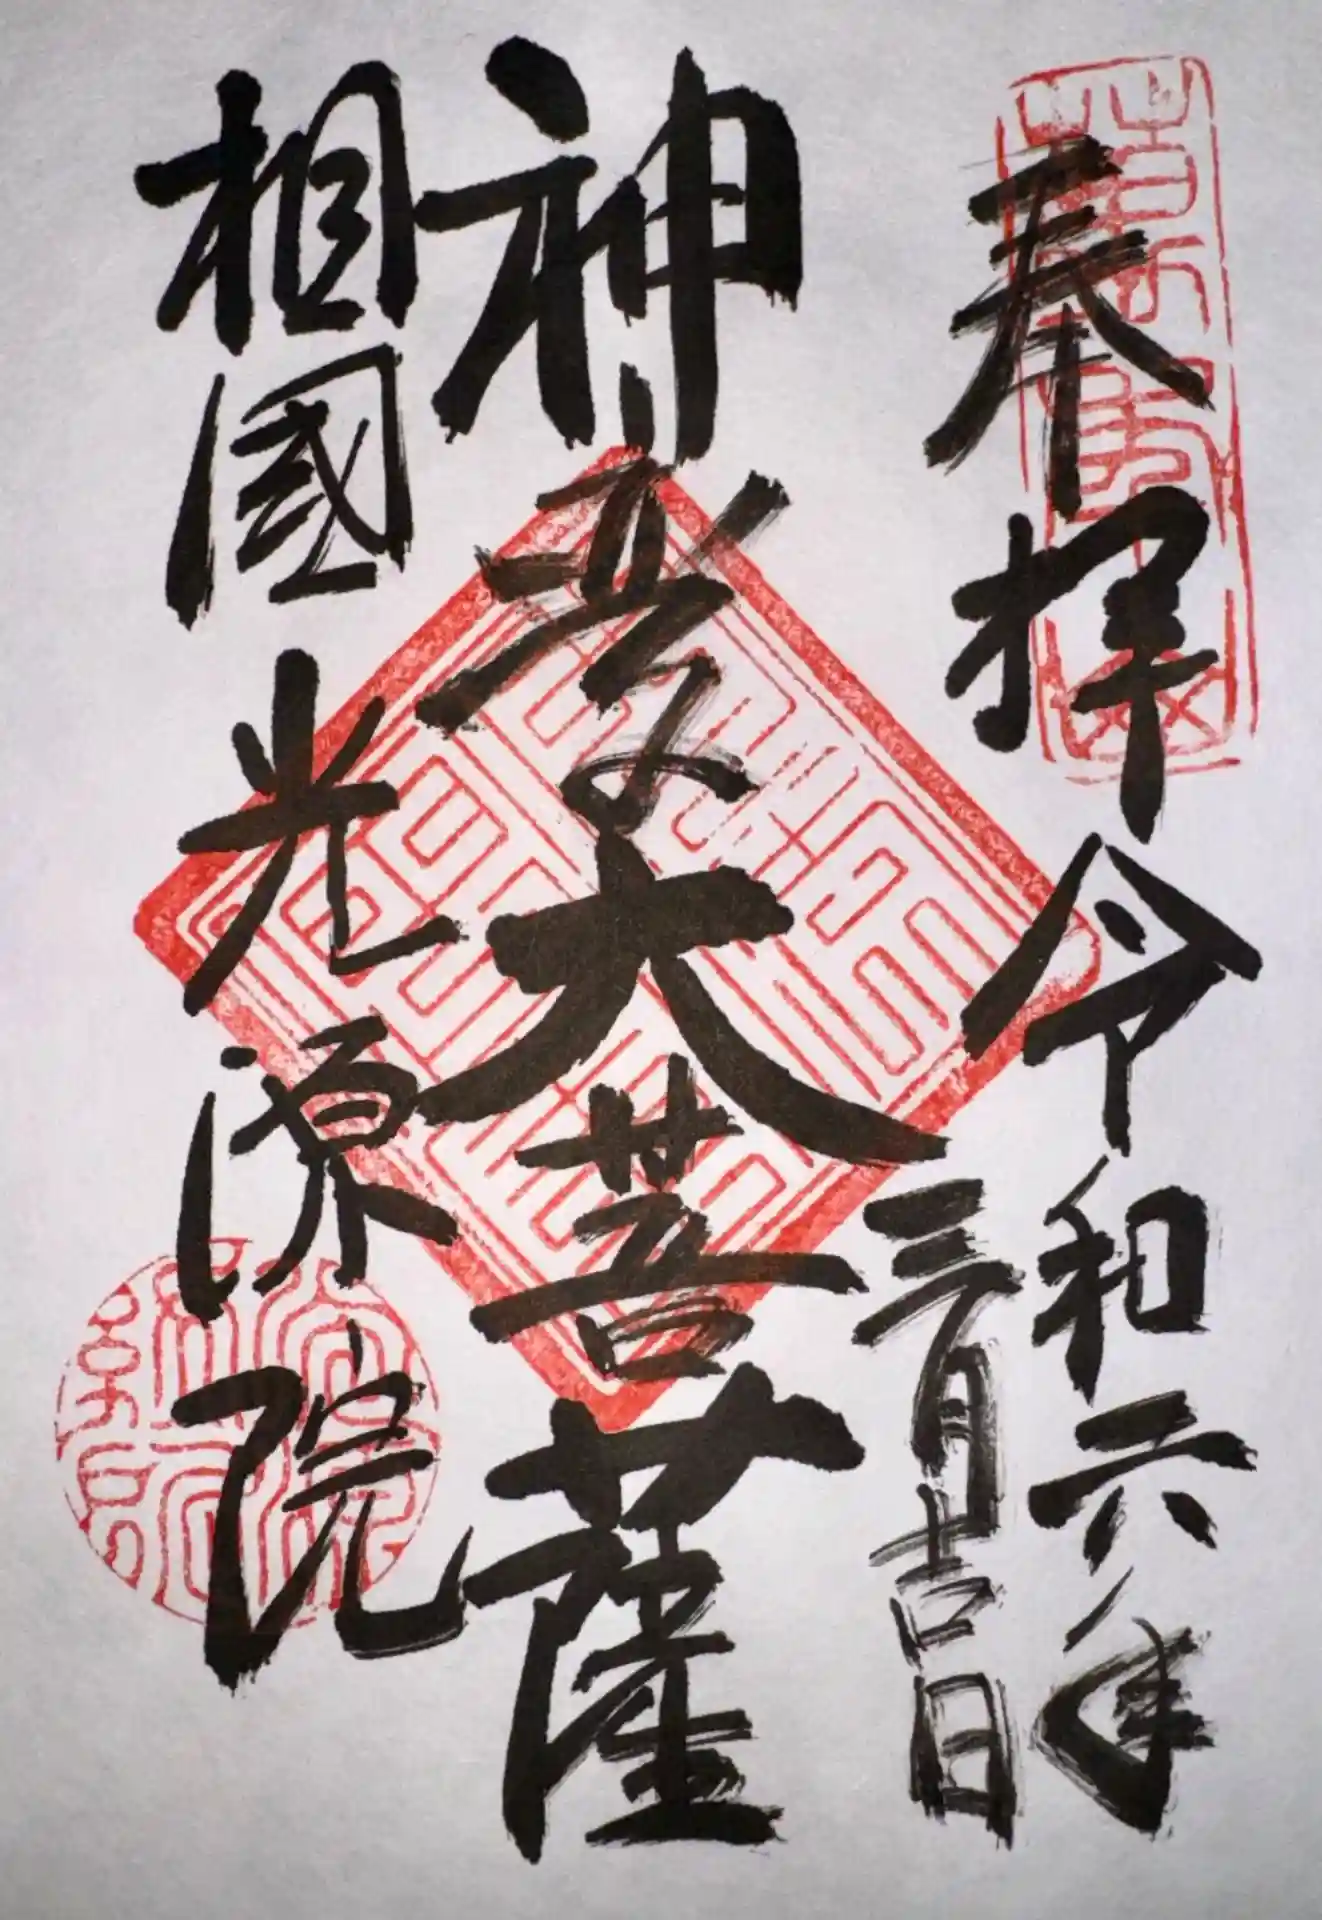 奉拝 令和六年
三月吉日
神変大菩薩
相國 光源院